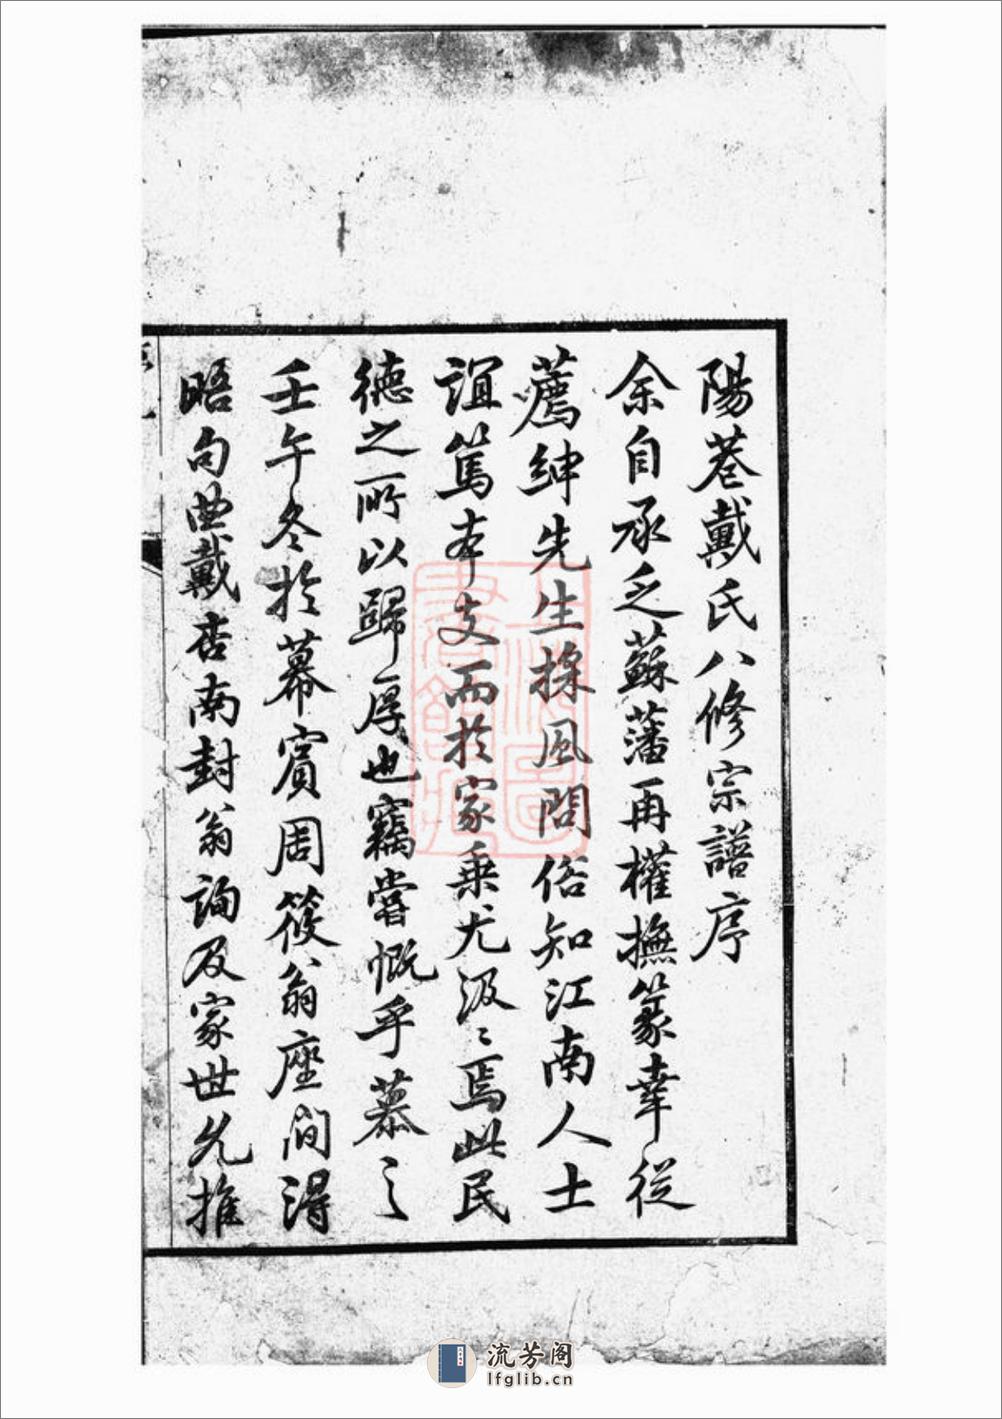 陽巷戴氏八修宗譜序
余自承乏蘇藩再權撫篆幸從
薦紳先生採風問俗知江南人士
誼篤本支而於家乗尤汲〻焉此民
德之所以歸厚也竊嘗慨乎慕之
壬午冬於幕賓周筱翁座間得
晤句曲戴杏南封翁詢及家世允推
流芳阁
lfglib.cn